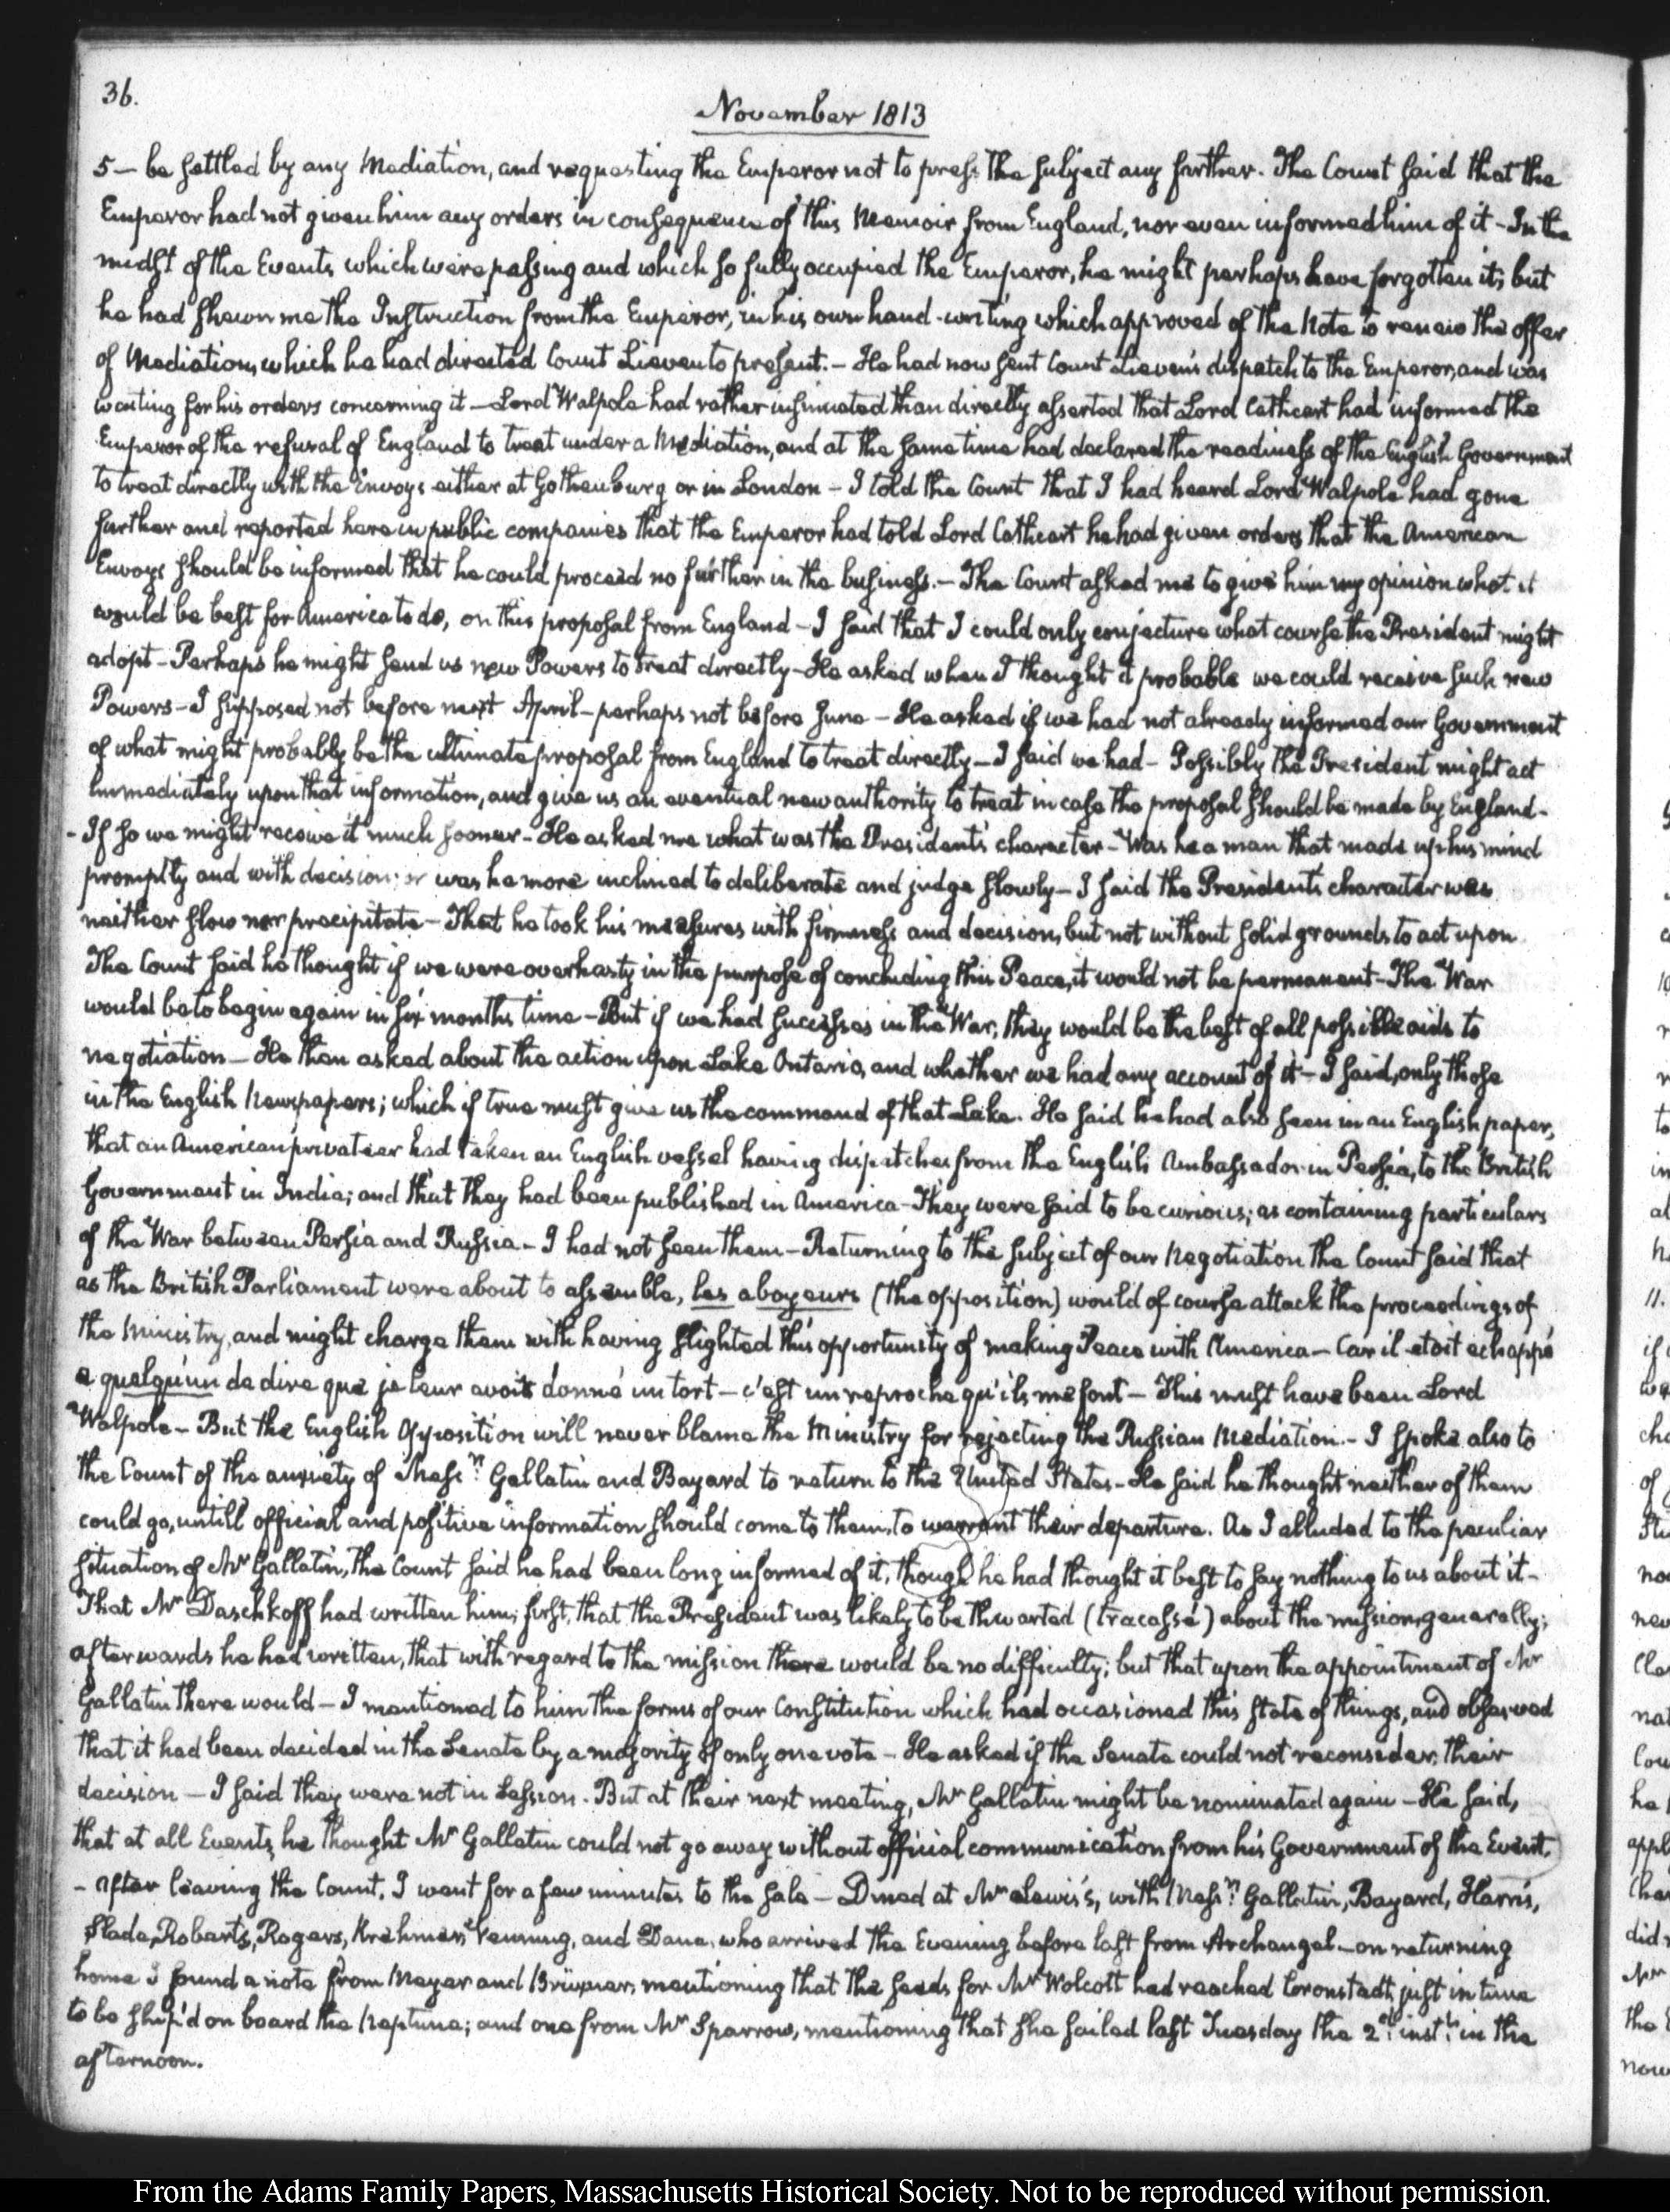 36.
November 1813
5 — be settled by any Mediation, and requesting the Emperor not to press the subject any further. The Count said that the
Emperor had not given him any orders in consequence of this Memoir from England, nor even informed him of it - In the
midst of the Events which were passing and which so fully occupied the Emperor, he might perhaps have forgotten it; but
he had shewn me the Instruction from the Emperor, in his own hand-writing which approved of the Note to renew the offer
of Mediation, which he had directed Count Lieven to present. - He had now sent Count Lieven's dispatch to the Emperor, and was
waiting for his orders concerning it — Lord Walpole had rather insinuated than directly asserted that Lord Cathcart had informed the
Emperor of the refusal of England to treat under a Mediation, and at the same time had declared the readiness of the English Government
to treat directly with the Envoys either at Gothenburg or in London - I told the Count that I had heard Lord Walpole had gone
further and reported here in public companies that the Emperor had told Lord Cathcart he had given orders that the American
Envoys should be informed that he could proceed no further in the business. - The Count asked me to give him my opinion what it
would be best for America to do, on this proposal from England - I said that I could only conjecture what course the President might
adopt - Perhaps he might send us new Powers to treat directly - He asked when I thought it probable we could receive such new
Powers - I supposed not before next April - perhaps not before June - He asked if we had not already informed our Government
of what might probably be the ultimate proposal from England to treat directly - I said we had - Possibly the President might act
immediately upon that information, and give us an eventual new authority to treat in case the proposal should be made by England -
- If so we might receive it much sooner - He asked me what was the President's character - Was he a man that made up his mind
promptly and with decision; or was he more inclined to deliberate and judge slowly - I said the President's character was
neither slow nor precipitate - That he took his measures with firmness and decision, but not without solid grounds to act upon
The Count said he thought if we were overhasty in the purpose of concluding this Peace, it would not be permanent - The War
would be to begin again in six months time - But if we had successes in the War, they would be the best of all possible aids to
negotiation - He then asked about the action upon Lake Ontario, and whether we had any account of it - I said, only those
in the English Newspapers; which if true must give us the command of that Lake. He said he had also seen in an English paper,
that an American privateer had taken an English vessel having dispatches from the English Ambassador in Persia, to the British
Government in India; and that they had been published in America - They were said to be curious; as containing particulars
of the War between Persia and Russia - I had not seen them - Returning to the subject of our Negotiation the Count said that
as the British Parliament were about to assemble, les aboyeurs (the opposition) would of course attack the proceedings of
the Ministry, and might charge them with having slighted this opportunity of making Peace with America - Car il etoit echappé
a quelqu'un de dire que je leur avois donné un tort - c'est un reproche qu'ils me font - This must have been Lord
Walpole - But the English Opposition will never blame the Ministry for rejecting the Russian Mediation. - I spoke also to
the Count of the anxiety of Mess.rs Gallatin and Bayard to return to the United States - He said he thought neither of them
could go, untill official and positive information should come to them, to warrant their departure. As I alluded to the peculiar
situation of Mr Gallatin, the Count said he had been long informed of it, though he had thought it best to say nothing to us about it -
That Mr Daschkoff had written him; first, that the President was likely to be thwarted (tracassé) about the mission, generally;
afterwards he had written, that with regard to the mission there would be no difficulty; but that upon the appointment of Mr
Gallatin there would - I mentioned to him the forms of our Constitution which had occasioned this state of things, and observed
that it had been decided in the Senate by a majority of only one vote - He asked if the Senate could not reconsider their
decision - I said they were not in Session. But at their next meeting, Mr Gallatin might be nominated again - He said,
that at all Events, he thought Mr Gallatin could not go away without official communication from his Government of the Event.
- After leaving the Count, I went for a few minutes to the sale - Dined at Mr Lewis's, with Mess.rs Gallatin, Bayard, Harris,
Slade, Roberts, Rogers, Krehmer, Venning, and Dana, who arrived the Evening before last from Archangel - on returning
home I found a note from Meyer and Brüxner, mentioning that the seeds for Mr Wolcott had reached Cronstadt, just in time
to be ship'd on board the Neptune; and one from Mr Sparrow, mentioning that she sailed last Tuesday the 2d inst.t in the
afternoon.
From the Adams Family Papers, Massachusetts Historical Society. Not to be reproduced without permission.